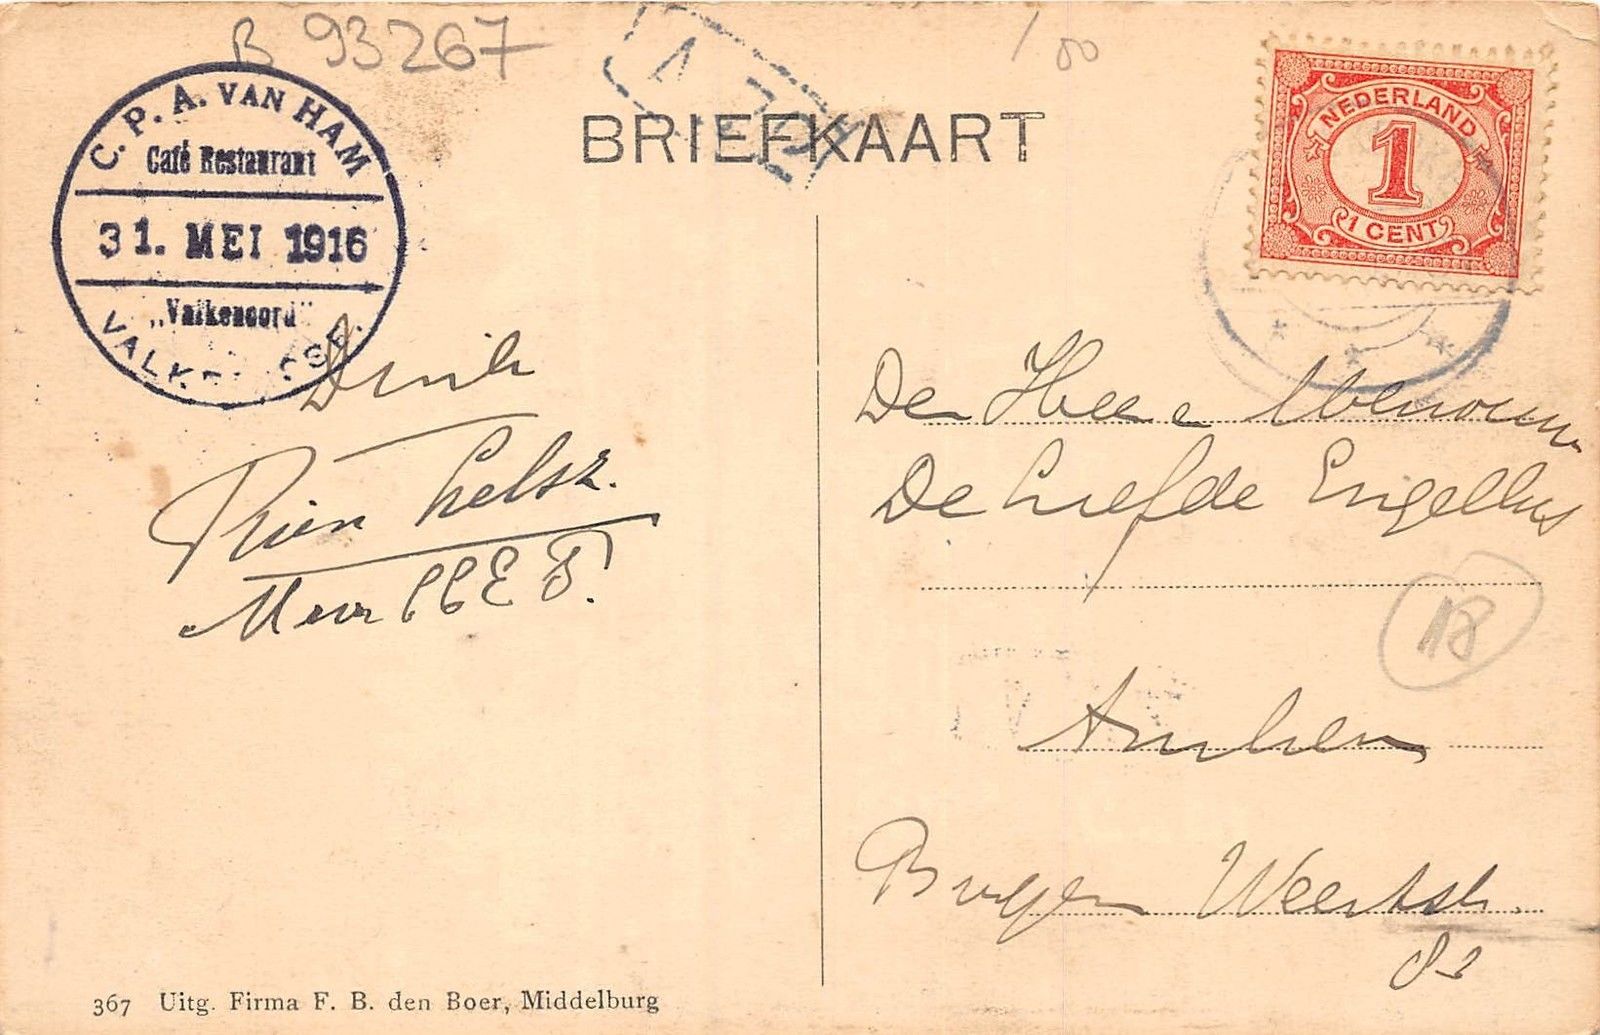 B 93267
100
BRIEFKAART
C. P. A. VAN HAM
Café Restaurant
31. MEI 1916
„Valkenoord"
NEDERLAND
1
1 CENT
De Heer e Mevrouw
De Liefde Engellus
18
Arnhem
Burgem Weertsstr.
82
Rien
367 Uitg. Firma F. B. den Boer, Middelburg